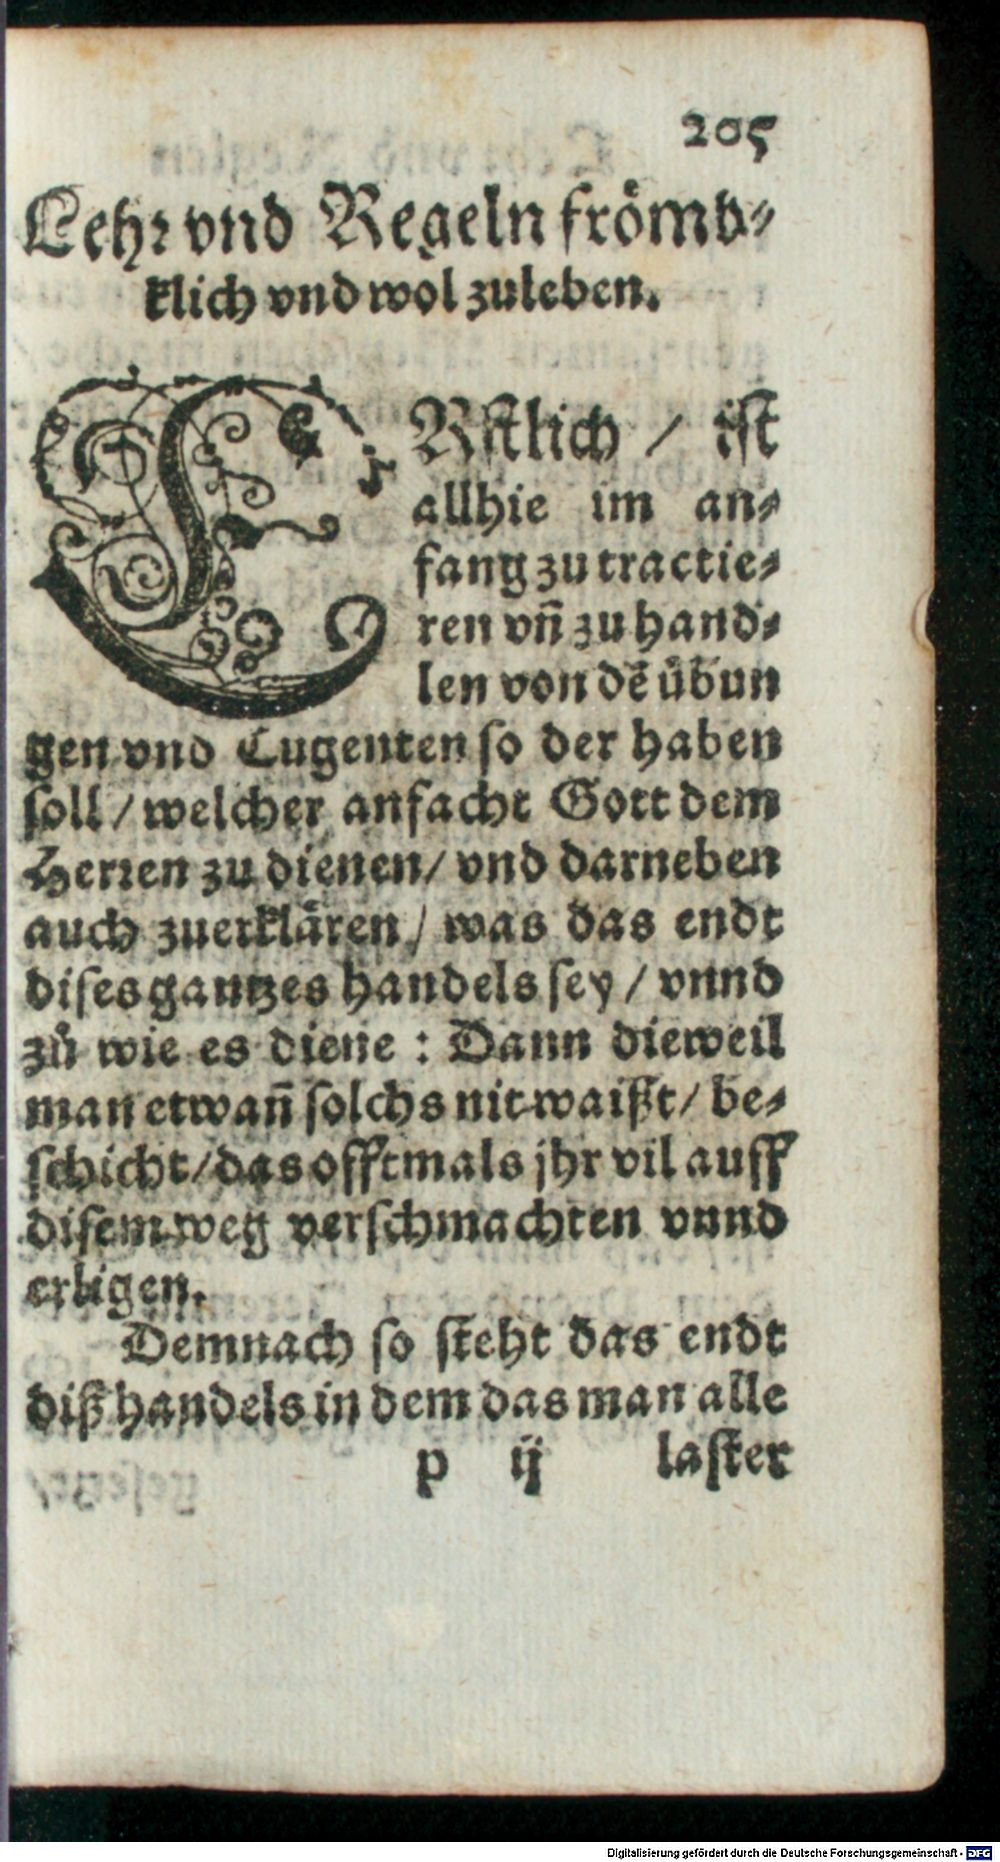 205
Lehr vnd Regeln frömb⸗
klich vnd wol zuleben.
ERstlich / ist
allhie im an⸗
fang zu tractie⸗
ren vñ zu hand⸗
len von dē übun
gen vnd Tugenten so der haben
soll / welcher anfacht Gott dem
Herren zu dienen / vnd darneben
auch zuerklären / was das endt
dises gantzes handels sey / vnnd
zů wie es diene : Dann dieweil
man etwañ solchs nit waißt / be⸗
schicht / das offtmals jhr vil auff
disem weg verschmachten vnnd
erligen.
Demnach so steht das endt
diß handels in dem das man alle
p ij laster
Digitalisierung gefördert durch die Deutsche Forschungsgemeinschaft - DFG